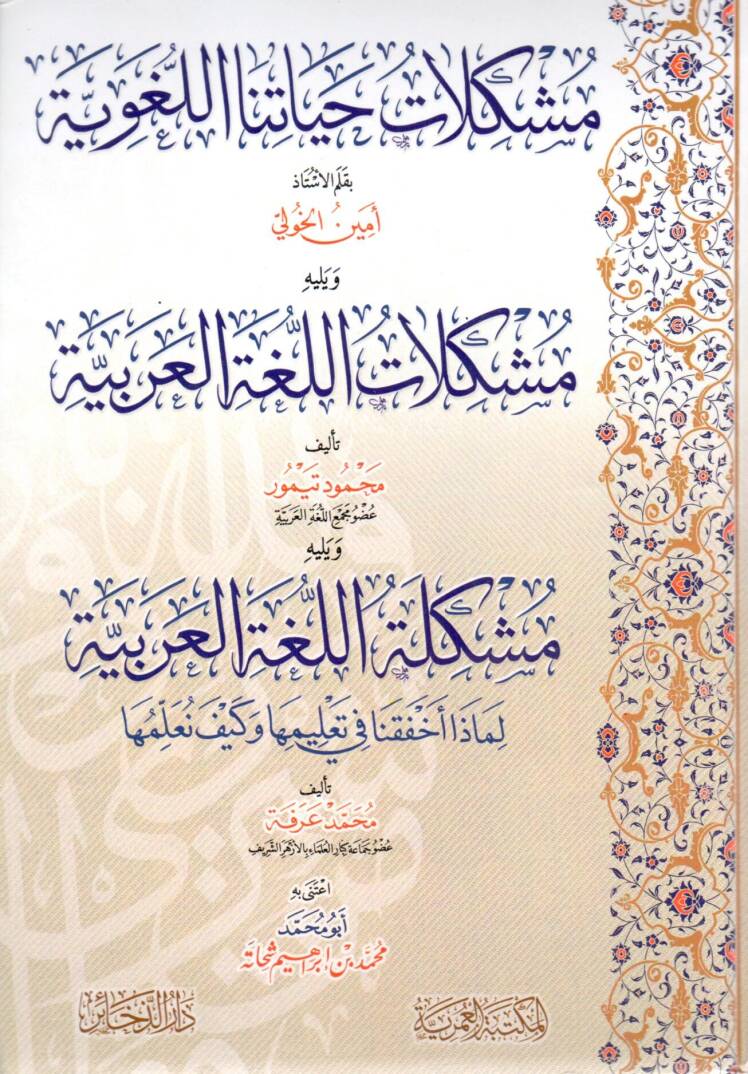 مُشْكِلَاتُ حَيَاتِنَا اللُّغَوِيَّة
بِقَلَمِ الأُسْتَاذ
أَمِين الخُولِيّ
وَيَلِيهِ
مُشْكِلَاتُ اللُّغَةِ العَرَبِيَّة
تأليف
مَحْمُود تَيْمُور
عُضْو مَجْمَع اللُّغَةِ العَرَبِيَّةِ
وَيَلِيهِ
مُشْكِلَةُ اللُّغَةِ العَرَبِيَّة
لِمَاذَا أَخْفَقْنَا فِي تَعْلِيمِهَا وَكَيْفَ نُعَلِّمُهَا
تأليف
مُحَمَّد عَرَفَة
عُضْو جَمَاعَة كِبَارِ العُلَمَاءِ بِالأَزْهَرِ الشَّرِيفِ
اعْتَنَى بِهِ
أَبُو مُحَمَّد
مُحَمَّد بْن إبْرَاهِيم شحاتة
المكتبة العمرية
دَارُ الذَّخَائِر